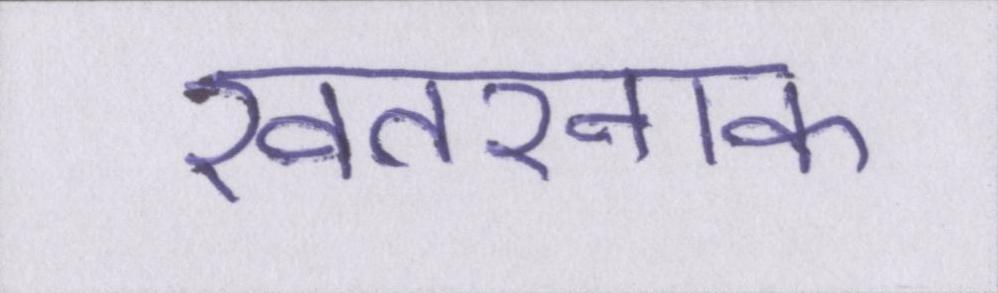 खतरनाक